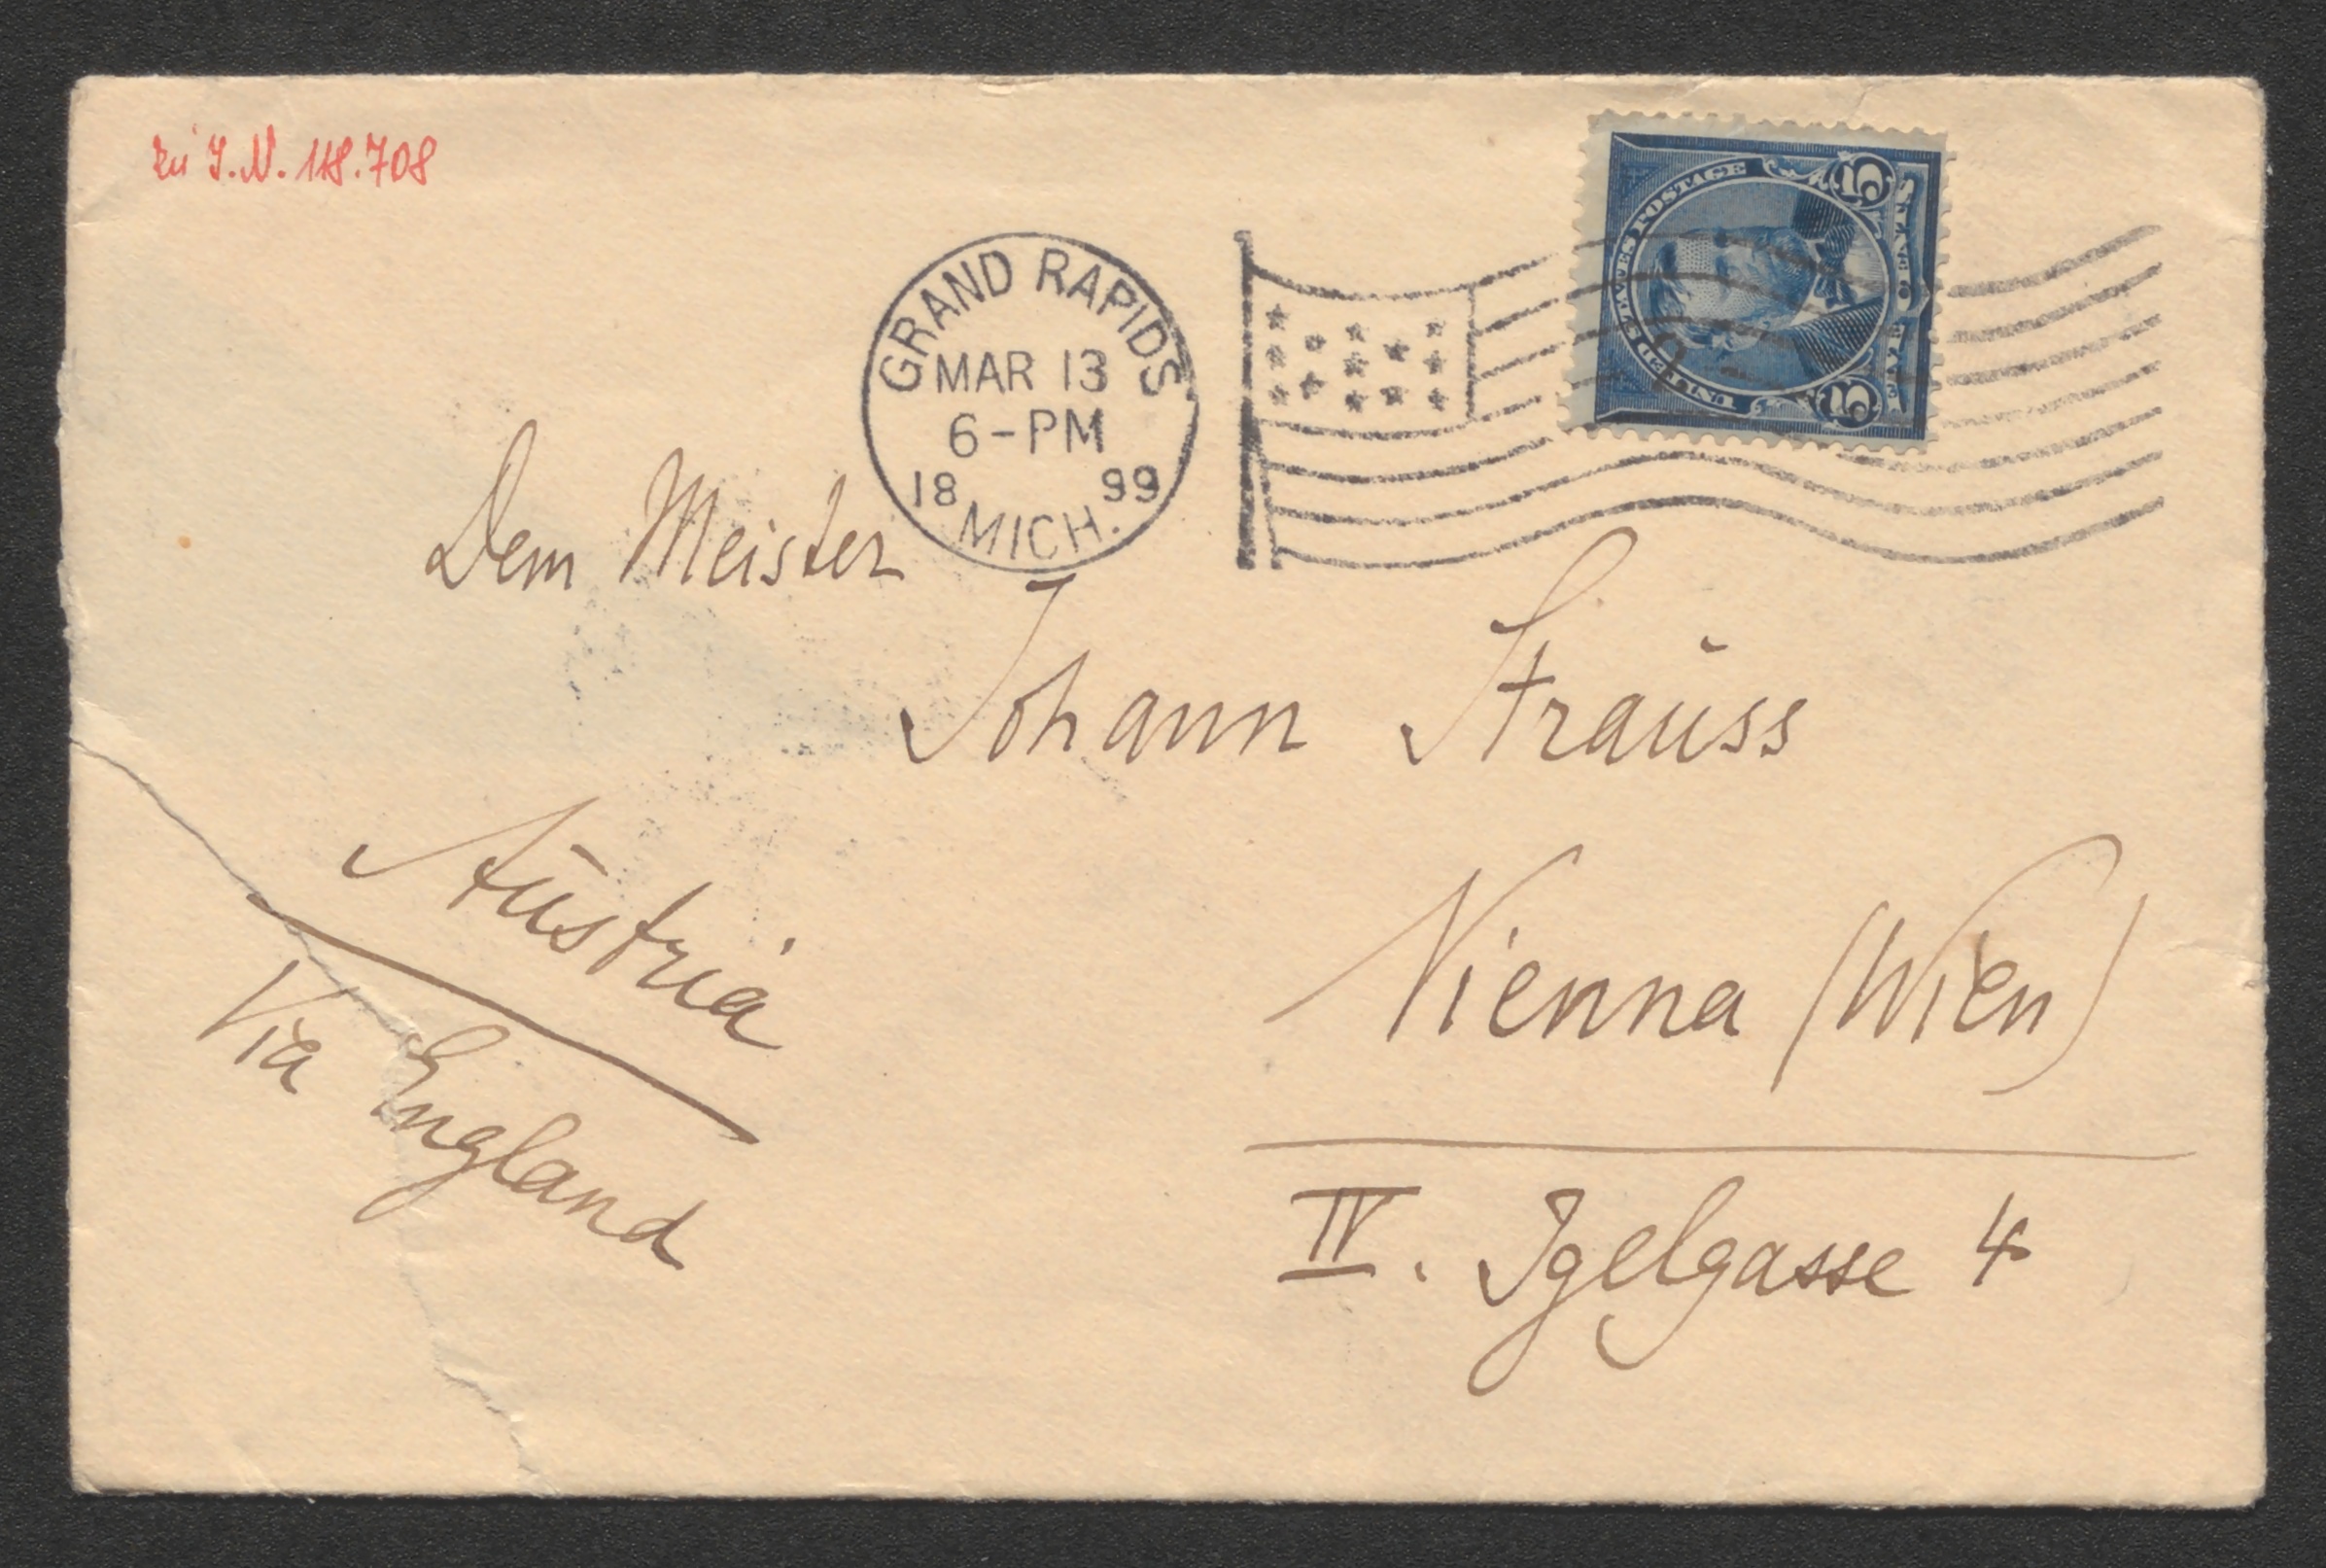 zu I.N. 118.708
GRAND RAPIDS.
MAR 13
6-PM
18 99
MICH.
UNITED STATES POSTAGE
5 5
FIVE CENTS
Dem Meister
Johann Strauss
Austria
Via England
Vienna (Wien)
IV. Igelgasse 4